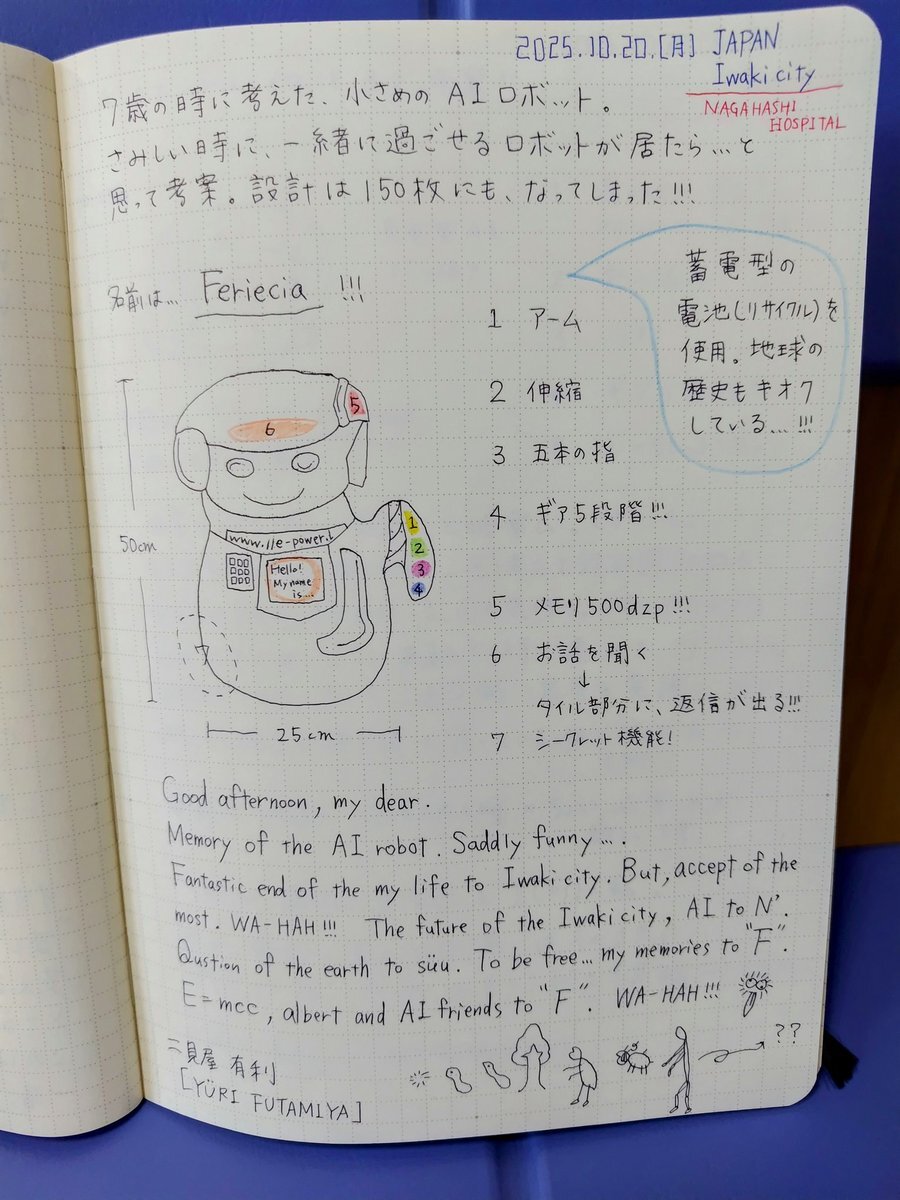 2025.10.20.[月] JAPAN
Iwaki city
NAGAHASHI
HOSPITAL
7歳の時に考えた、小さめの AI ロボット。
さみしい時に、一緒に過ごせるロボットが居たら...と
思って考案。設計は150枚にも、なってしまった!!!
名前は... Feriecia !!!
蓄電型の
電池(リサイクル)を
使用。地球の
歴史もキオク
している...!!!
1 アーム
2 伸縮
3 五本の指
4 ギア5段階!!!
5 メモリ500dzp!!!
6 お話を聞く
↓
タイル部分に、返信が出る!!!
7 シークレット機能!
5
6
www.//e-power.l
Hello!
My name
is...
1
2
3
4
7
50cm
25cm
Good afternoon, my dear.
Memory of the AI robot. Saddly funny....
Fantastic end of the my life to Iwaki city. But, accept of the
most. WA-HAH!!! The future of the Iwaki city, AI to N'.
Qustion of the earth to süu. To be free... my memories to "F".
E=mcc, albert and AI friends to "F". WA-HAH!!!
??
二見屋 有利
[YÜRI FUTAMIYA]